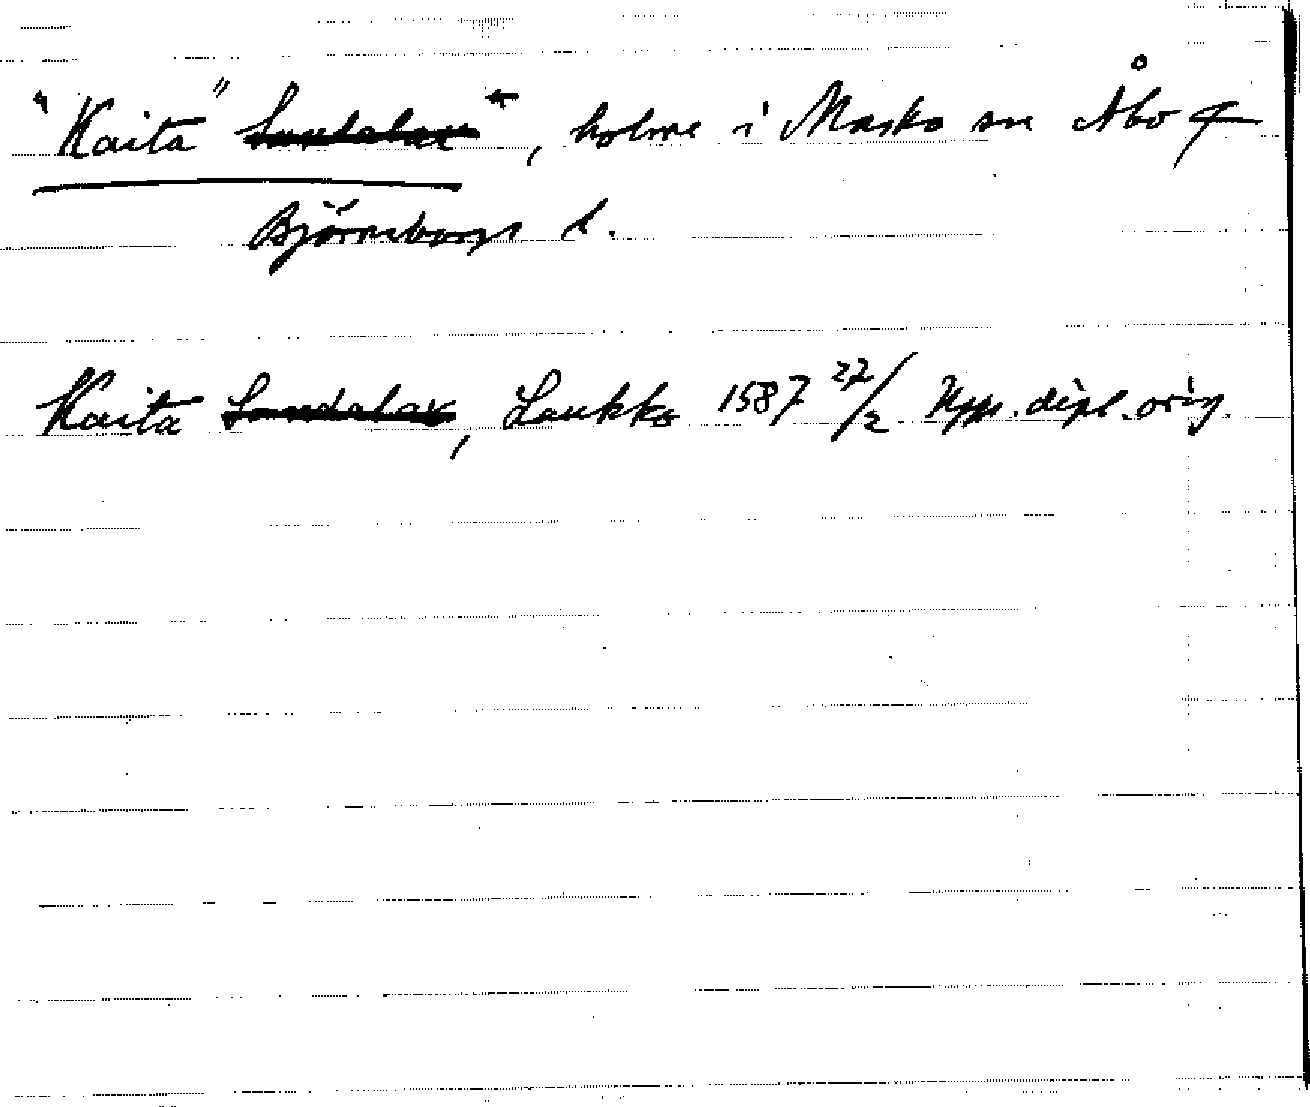 "Kaita" ~~Sandalax~~", holme i Masko sn Åbo o
Björneborgs l.
Kaita ~~Sandalax~~, Laukko 1587 22/2 Upps. dipl. orig.